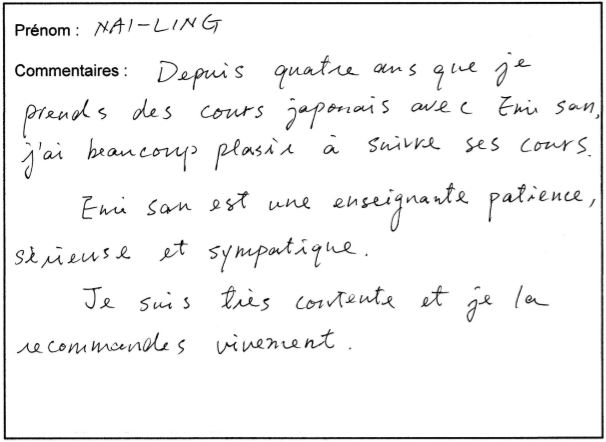 Prénom : NAI-LING
Commentaires : Depuis quatre ans que je
prends des cours japonais avec Emi san,
j'ai beaucoup plasir à suivre ses cours.
Emi san est une enseignante patience,
sérieuse et sympatique.
Je suis très contente et je la
recommandes vivement.